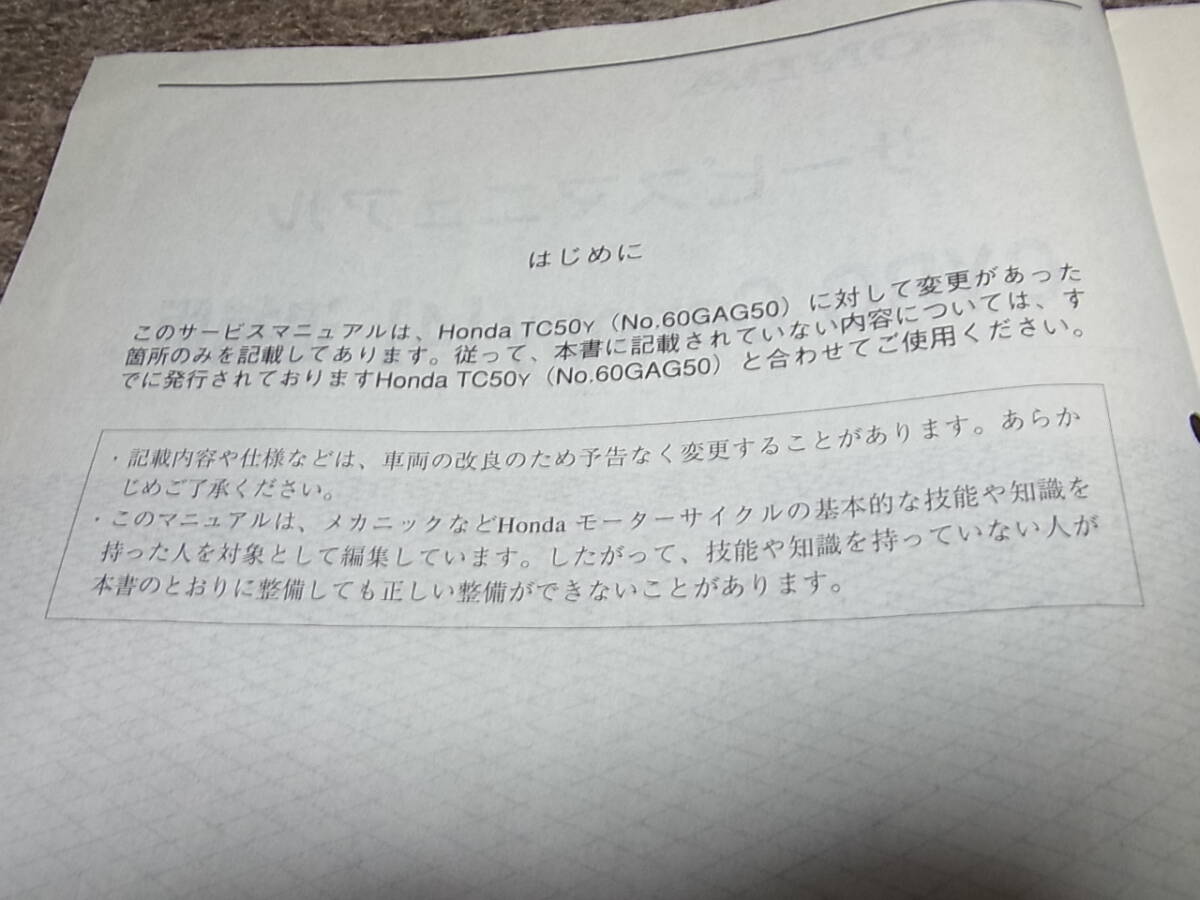 はじめに
このサービスマニュアルは、Honda TC50Y（No.60GAG50）に対して変更があった
箇所のみを記載してあります。従って、本書に記載されていない内容については、す
でに発行されておりますHonda TC50Y（No.60GAG50）と合わせてご使用ください。
・記載内容や仕様などは、車両の改良のため予告なく変更することがあります。あらか
じめご了承ください。
・このマニュアルは、メカニックなどHonda モーターサイクルの基本的な技能や知識を
持った人を対象として編集しています。したがって、技能や知識を持っていない人が
本書のとおりに整備しても正しい整備ができないことがあります。